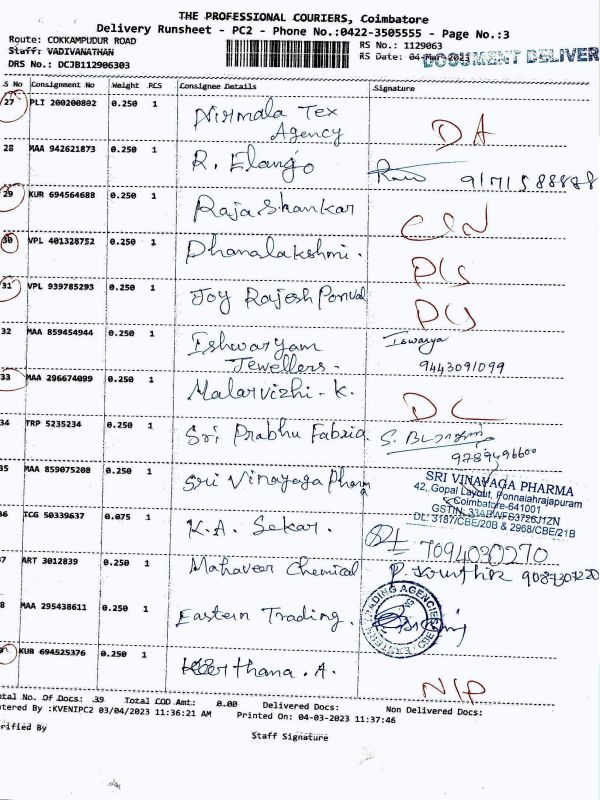 THE PROFESSIONAL COURIERS, Coimbatore
Delivery Runsheet - PC2 - Phone No.:0422-3505555 - Page No.:3
Route: COKKAMPUDUR ROAD
RS No.: 1129063
Staff: VADIVANATHAN
RS Date: 04-Mar-2023
DOCUMENT DELIVER
DRS No.: DCJB112906303
S No Consignment No Weight PCS Consignee Details Signature
27 PLI 200200802 0.250 1 Nirmala Tex
Agency DA
28 MAA 942621873 0.250 1 R. Elango
29 KUR 694564688 0.250 1 RajaShankar
30 VPL 401328752 0.250 1 Dhanalakshmi.
31 VPL 939785293 0.250 1 Joy Rajesh Ponval
32 MAA 859454944 0.250 1 Eshwaryam Iswarya
Jewellers. 9443091099
33 MAA 296674099 0.250 1 Malarvizhi - K. DC
34 TRP 5235234 0.250 1 Sri Prabhu Fabric. S.
35 MAA 859075208 0.250 1 Sri Vinayaga Pharm
SRI VINAYAGA PHARMA
42, Gopal Layout, Ponnaiahrajapuram
Coimbatore-641001
GSTIN: 33ABWFS3726J1ZN
DL: 3187/CBE/20B & 2968/CBE/21B
36 TCG 50339637 0.075 1 K.A. Sekar. 7094030270
37 ART 3012839 0.250 1 Mahaveer Chemical P. 9087307220
38 MAA 295438611 0.250 1 Eastern Trading.
KUR 694525376 0.250 1 Keerthana . A. N/P
Total No. Of Docs: 39 Total COD Amt: 0.00 Delivered Docs: Non Delivered Docs:
ntered By :KVENIPC2 03/04/2023 11:36:21 AM Printed On: 04-03-2023 11:37:46
erified By
Staff Signature